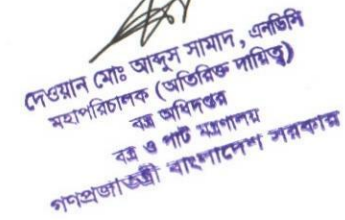 দেওয়ান মোঃ আব্দুস সামাদ, এনডিসি
মহাপরিচালক (অতিরিক্ত দায়িত্ব)
বস্ত্র অধিদপ্তর
বস্ত্র ও পাট মন্ত্রণালয়
গণপ্রজাতন্ত্রী বাংলাদেশ সরকার